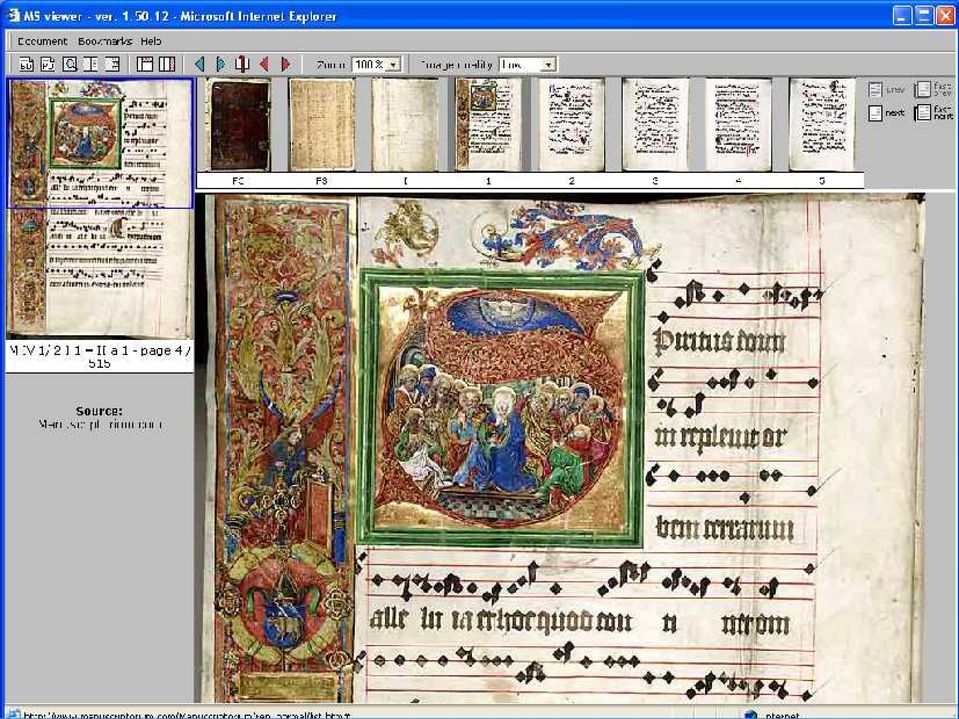 MS viewer - ver. 1.50.12 - Microsoft Internet Explorer
Document Bookmarks Help
Zoom: 100 % Image quality: Low
prev fast prev
next fast next
FC FS I 1 2 3 4 5
M IV 1/ 2 I 1 = II a 1 - page 4 /
515
Source:
Manuscriptorium.com
Piritus dom
ini repleuit or
bem terrarum
alle lu ia et hoc quod con ti net om
Internet